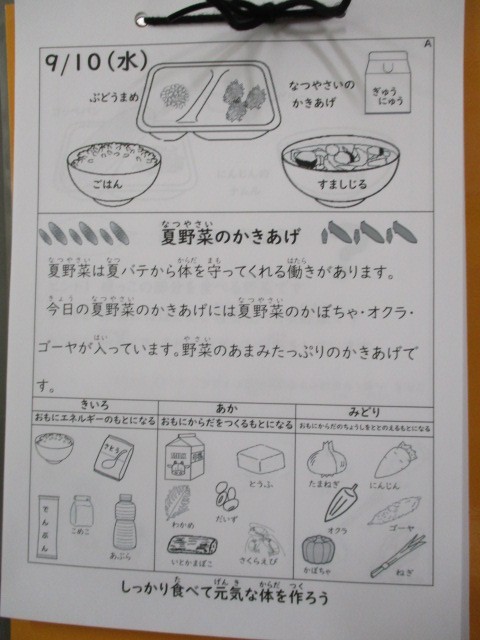 A
9/10(水)
ぶどうまめ
なつやさいの
かきあげ
ぎゅう
にゅう
ごはん
すましじる
夏野菜のかきあげ
夏野菜は夏バテから体を守ってくれる働きがあります。
今日の夏野菜のかきあげには夏野菜のかぼちゃ・オクラ・
ゴーヤが入っています。野菜のあまみたっぷりのかきあげで
す。
きいろ
あか
みどり
おもにエネルギーのもとになる
おもにからだをつくるもとになる
おもにからだのちょうしをととのえるもとになる
さとう
とうふ
たまねぎ
にんじん
でんぷん
こめこ
あぶら
わかめ
だいず
オクラ
ゴーヤ
いとかまぼこ
さくらえび
かぼちゃ
ねぎ
しっかり食べて元気な体を作ろう